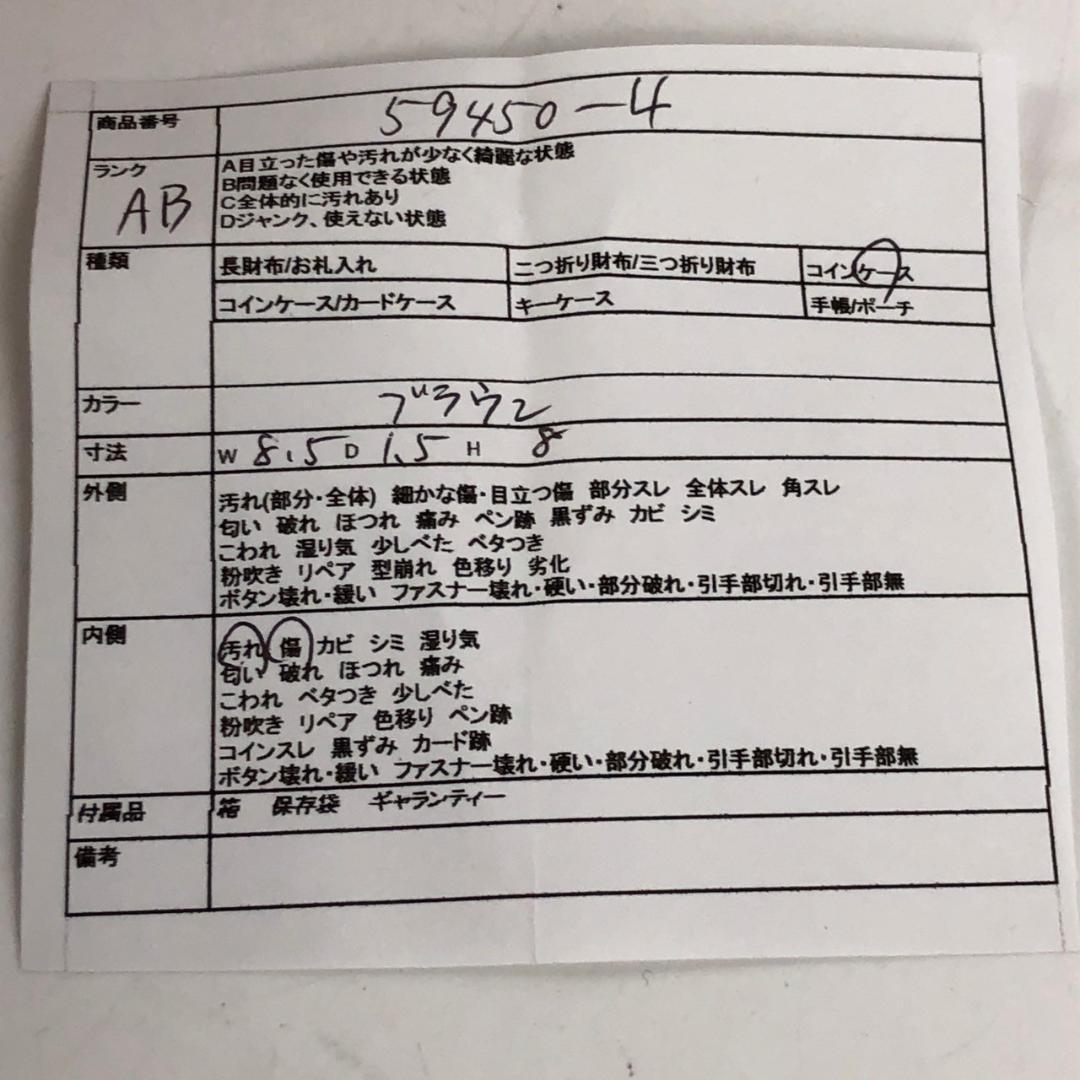 商品番号 59450-4
ランク AB
A目立った傷や汚れが少なく綺麗な状態
B問題なく使用できる状態
C全体的に汚れあり
Dジャンク、使えない状態
種類 長財布/お札入れ 二つ折り財布/三つ折り財布 コインケース
コインケース/カードケース キーケース 手帳/ポーチ
カラー ブラウン
寸法 W 8.5 D 1.5 H 8
外側 汚れ(部分・全体) 細かな傷・目立つ傷 部分スレ 全体スレ 角スレ
匂い 破れ ほつれ 痛み ペン跡 黒ずみ カビ シミ
こわれ 湿り気 少しべた ベタつき
粉吹き リペア 型崩れ 色移り 劣化
ボタン壊れ・緩い ファスナー壊れ・硬い・部分破れ・引手部切れ・引手部無
内側 汚れ 傷 カビ シミ 湿り気
匂い 破れ ほつれ 痛み
こわれ ベタつき 少しべた
粉吹き リペア 色移り ペン跡
コインスレ 黒ずみ カード跡
ボタン壊れ・緩い ファスナー壊れ・硬い・部分破れ・引手部切れ・引手部無
付属品 箱 保存袋 ギャランティー
備考